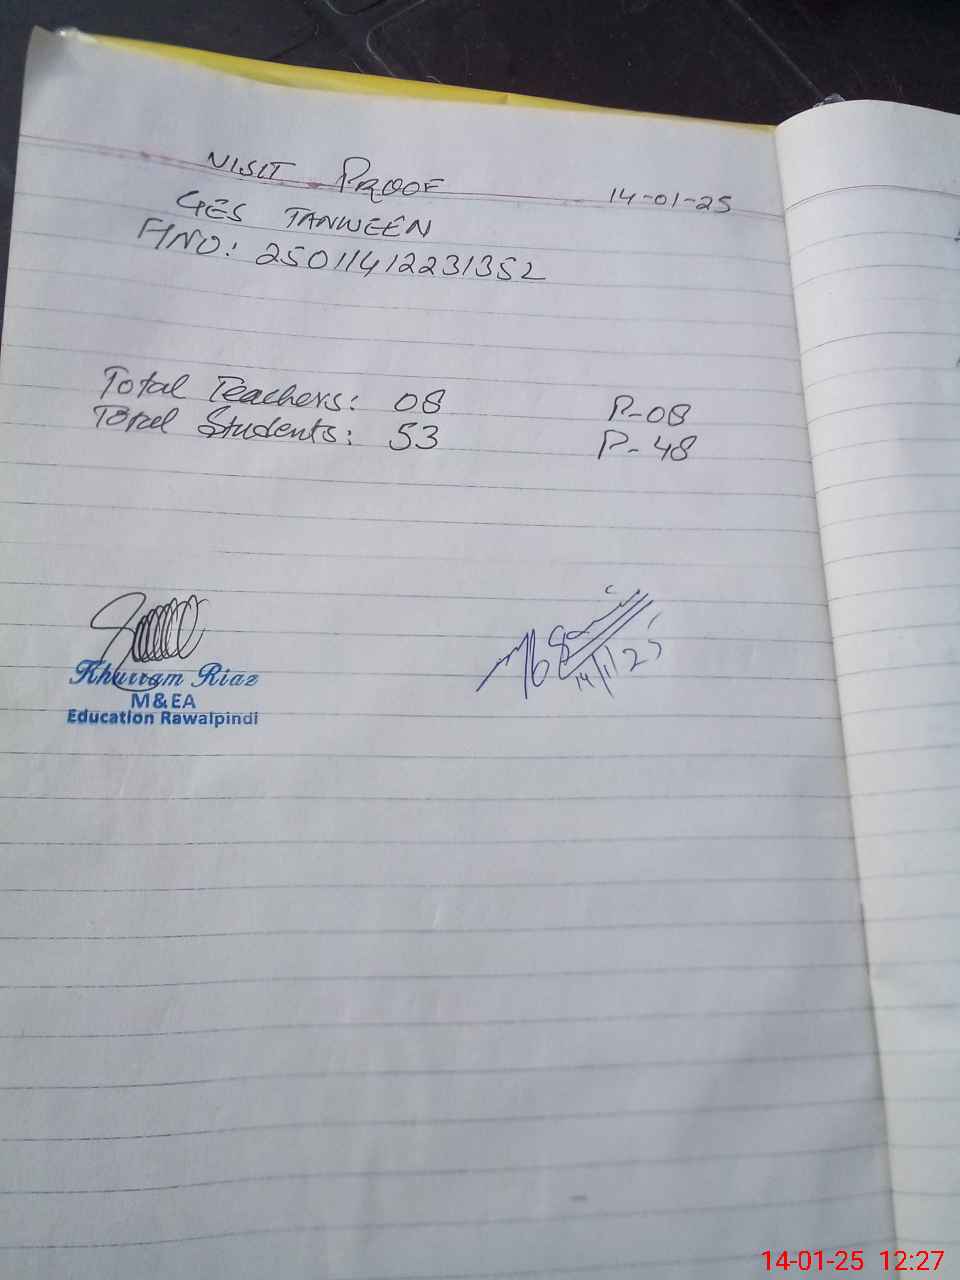 VISIT PROOF 14-01-25
GES TANWEEN
F/NO: 25011412231352
Total Teachers: 08 P-08
Total Students: 53 P-48
Khurram Riaz
M&EA
Education Rawalpindi
14/1/25
14-01-25 12:27